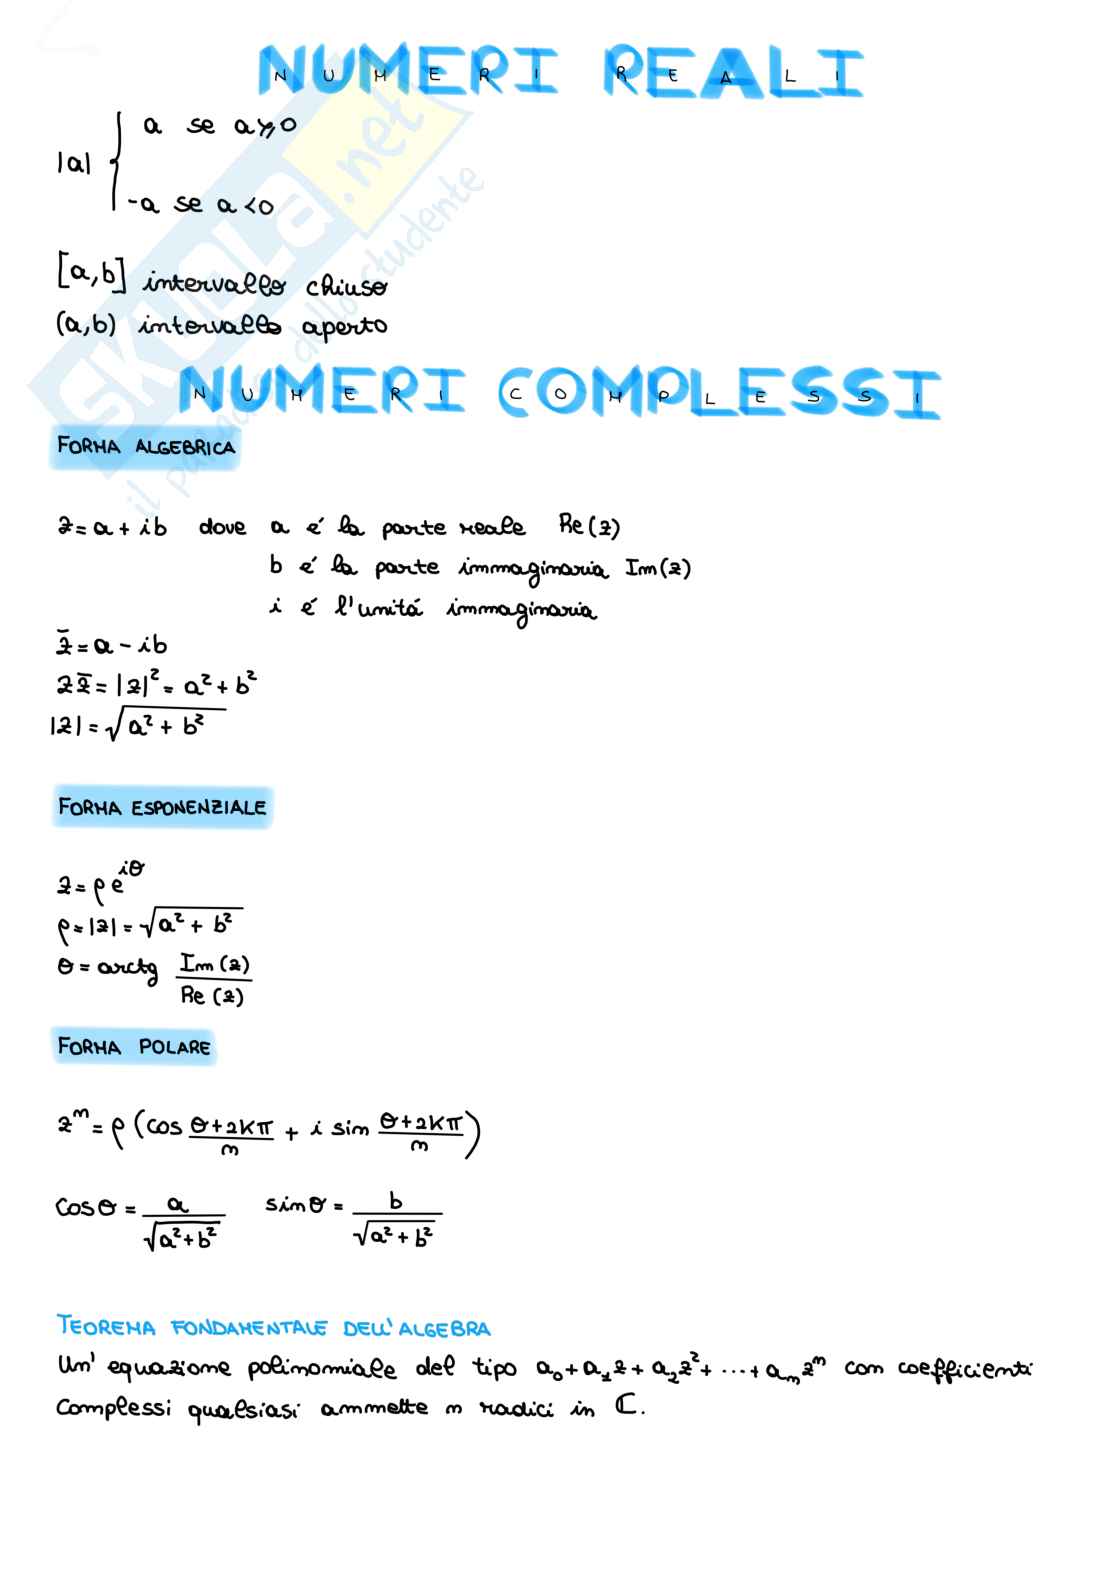 NUMERI REALI
|a| { a se a⩾0
-a se a<0
[a,b] intervallo chiuso
(a,b) intervallo aperto
NUMERI COMPLESSI
FORMA ALGEBRICA
z = a + ib dove a é la parte reale Re(z)
b é la parte immaginaria Im(z)
i é l'unitá immaginaria
z̄ = a - ib
z z̄ = |z|² = a² + b²
|z| = √(a² + b²)
FORMA ESPONENZIALE
z = ρ e^{iθ}
ρ = |z| = √(a² + b²)
θ = arctg Im(z)/Re(z)
FORMA POLARE
zⁿ = ρ (cos (θ+2kπ)/n + i sin (θ+2kπ)/n)
cos θ = a/√(a²+b²) sin θ = b/√(a²+b²)
TEOREMA FONDAMENTALE DELL'ALGEBRA
Un' equazione polinomiale del tipo a₀ + a₁z + a₂z² + ... + aₙzⁿ con coefficienti
complessi qualsiasi ammette n radici in ℂ.
SKUOLA.net
il paradiso dello studente